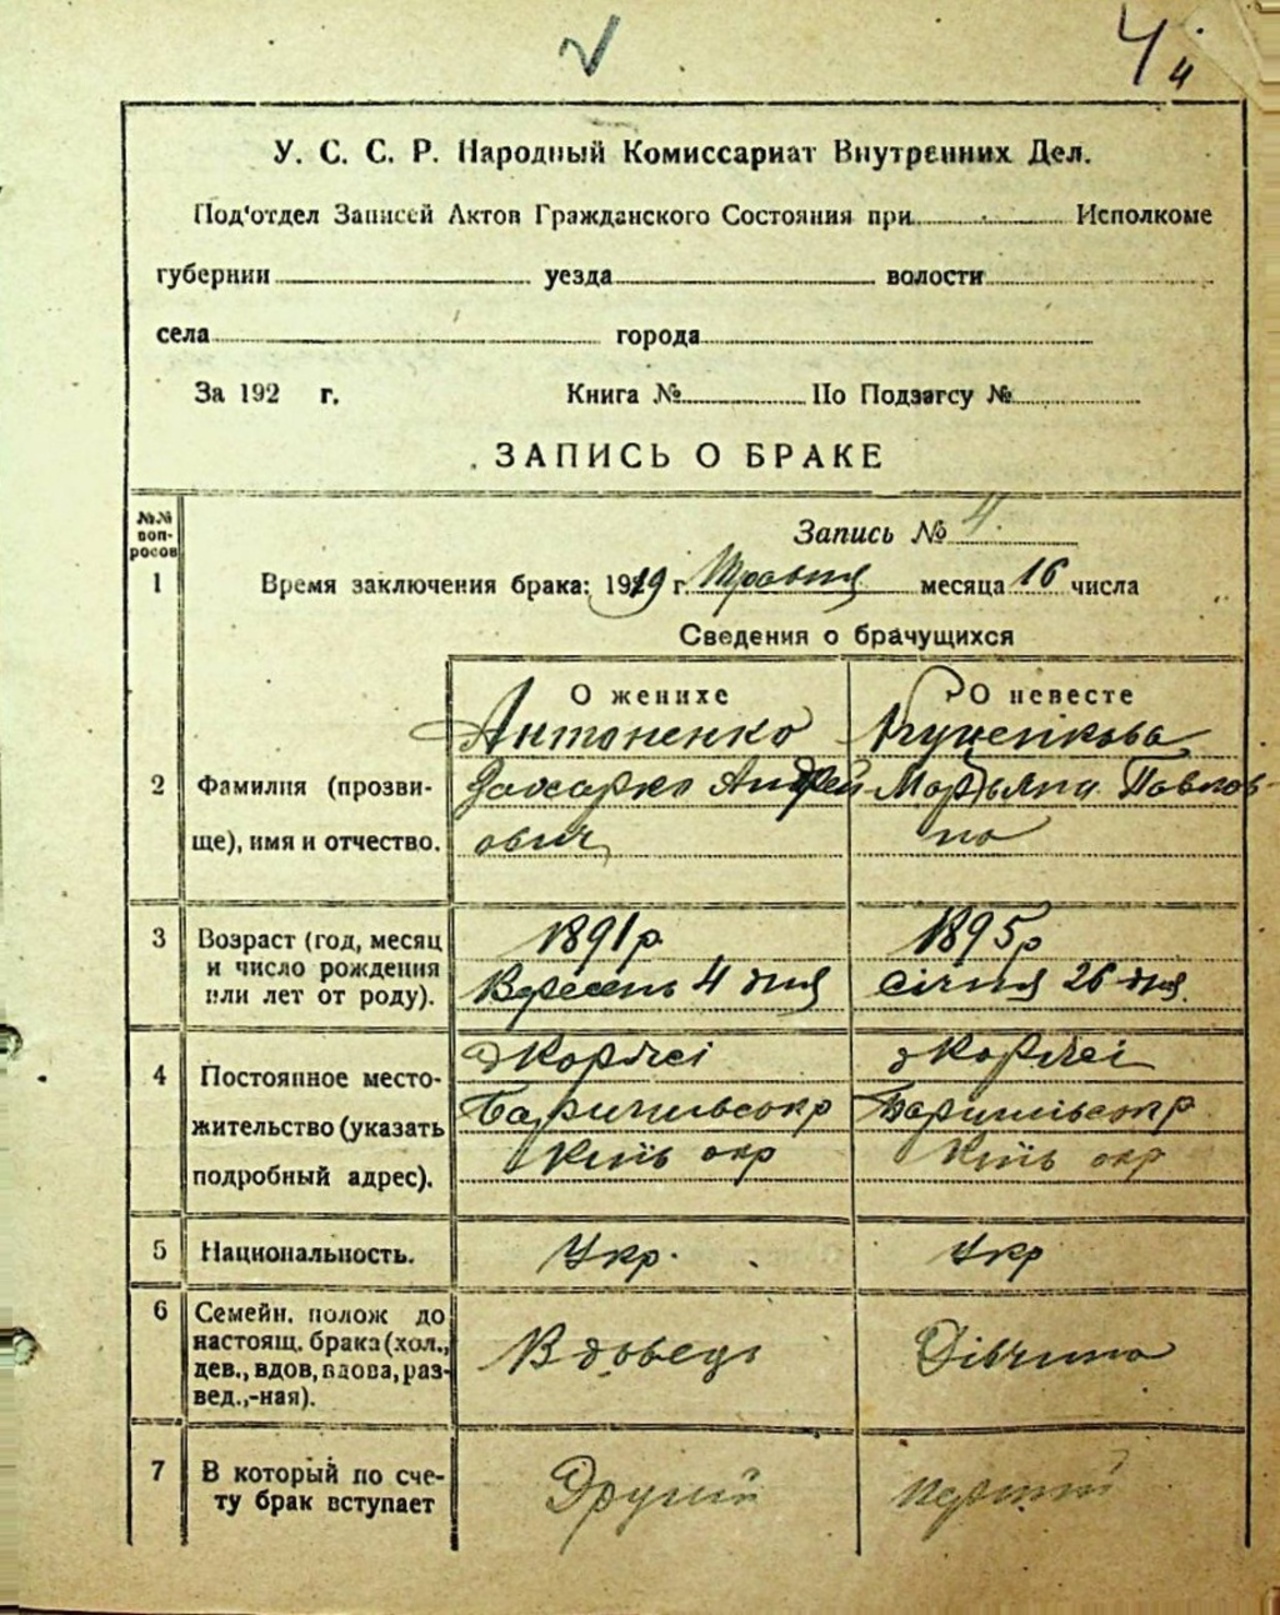 4
4
У. С. С. Р. Народный Комиссариат Внутренних Дел.
Под'отдел Записей Актов Гражданского Состояния при Исполкоме
губернии уезда волости
села города
За 192 г. Книга № По Подзагсу №
ЗАПИСЬ О БРАКЕ
№.№ воп-
росов
Запись № 4.
1 Время заключения брака: 1919 г. Травня месяца 16 числа
Сведения о брачущихся
О женихе О невесте
2 Фамилия (прозви-
ще), имя и отчество.
Антоненко
Захарко Андрей
ович
Марьяна Павлов-
на
3 Возраст (год, месяц
и число рождения
или лет от роду).
1891 р.
Вересень 4 дня
1895 р
Січня 26 дня.
4 Постоянное место-
жительство (указать
подробный адрес).
Київ окр
Київ окр
5 Национальность.
Укр.
Укр
6 Семейн. полож до
настоящ. брака (хол.,
дев., вдов, вдова, раз-
вед.,-ная).
Вдовець
Дівчина
7 В который по сче-
ту брак вступает
Другий
перший